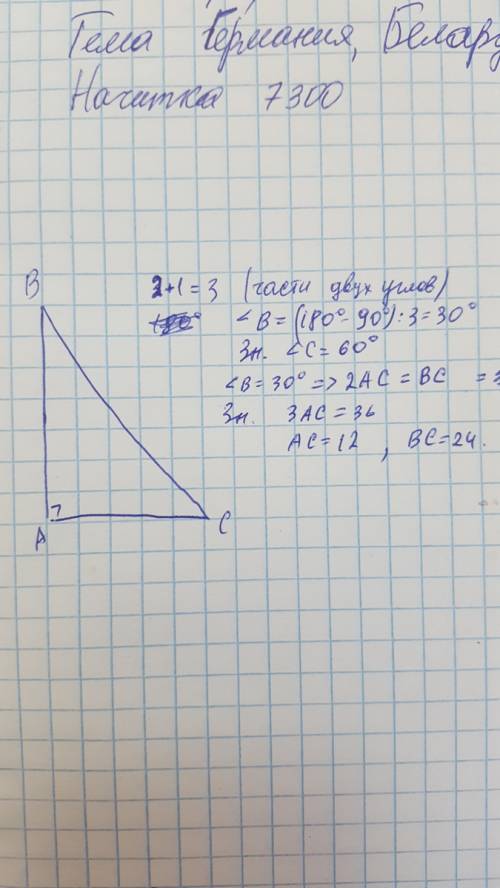 Тема Германия, Белару
Начитка 7300
B
2+1=3 (части двух углов)
∠B=(180°-90°):3=30°
Зн. ∠C=60°
∠B=30°=>2AC=BC =3
Зн. 3AC=36
AC=12, BC=24.
A
C